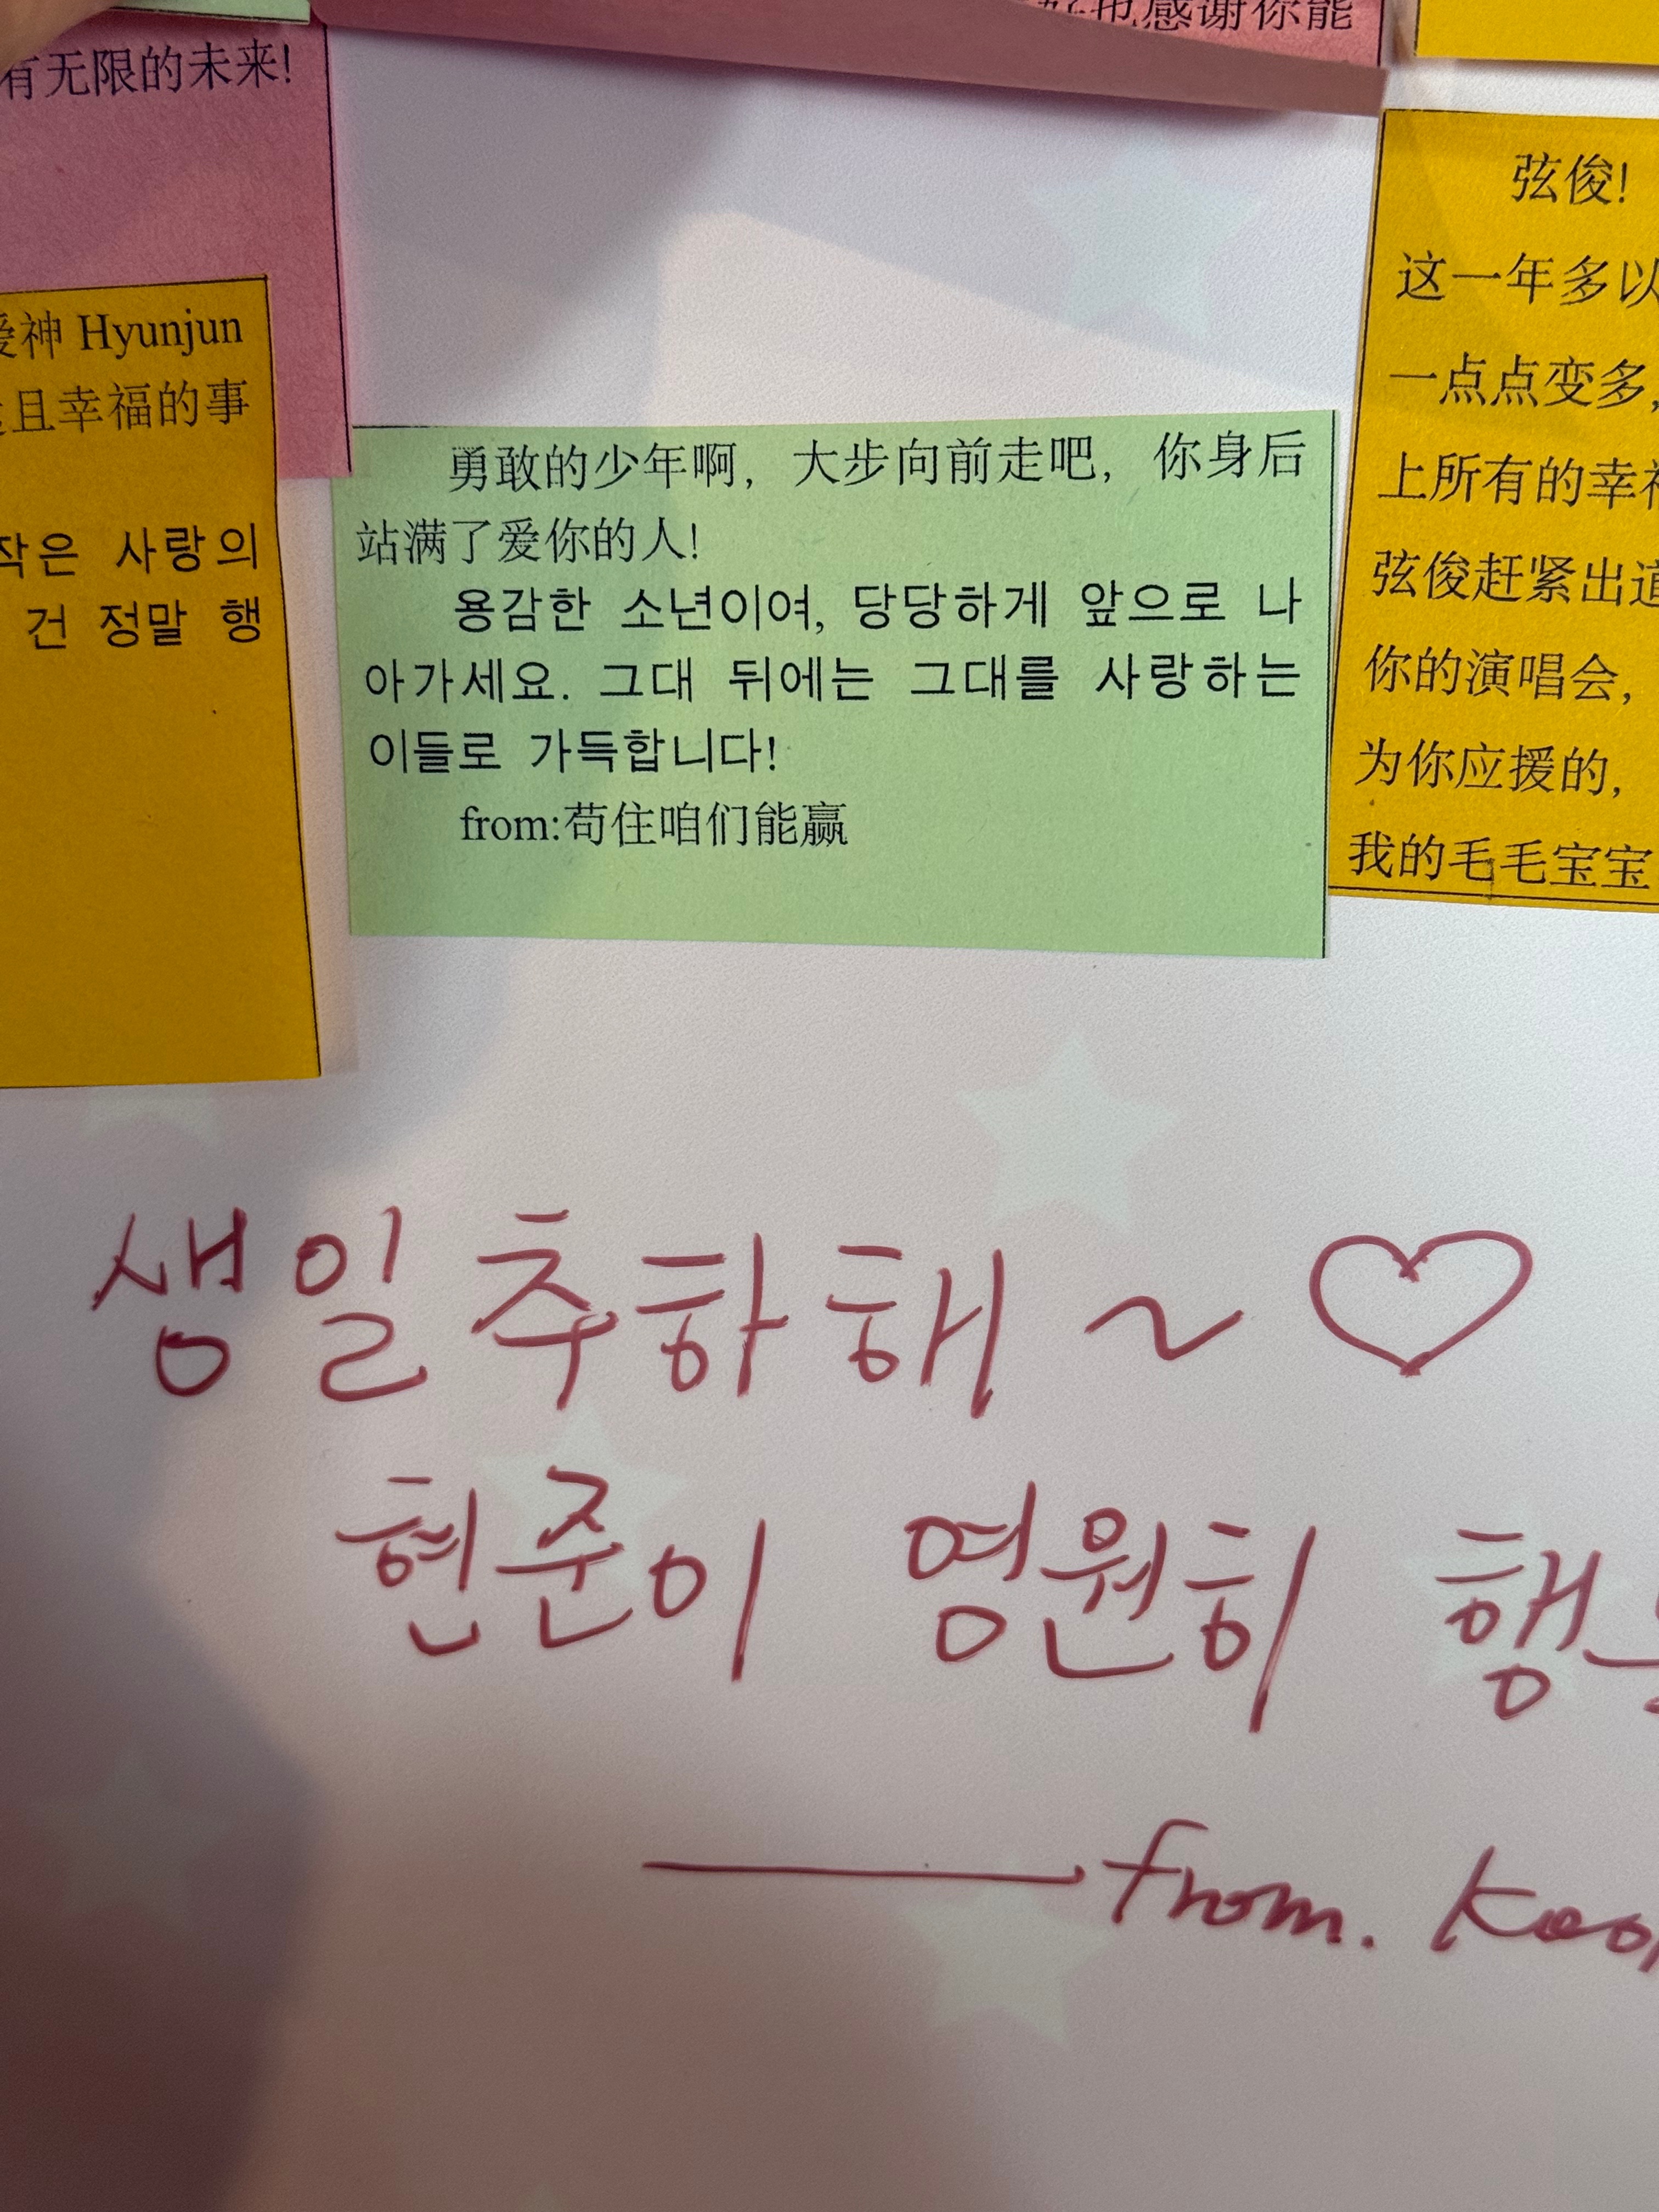 好也感谢你能
有无限的未来!
爱神 Hyunjun
且幸福的事
작은 사랑의
건 정말 행
勇敢的少年啊，大步向前走吧，你身后
站满了爱你的人!
용감한 소년이여, 당당하게 앞으로 나
아가세요. 그대 뒤에는 그대를 사랑하는
이들로 가득합니다!
from:苟住咱们能赢
弦俊!
这一年多以
一点点变多，
上所有的幸福
弦俊赶紧出道
你的演唱会，
为你应援的，
我的毛毛宝宝
생일추하해~♡
현준이 영원히 행
from.